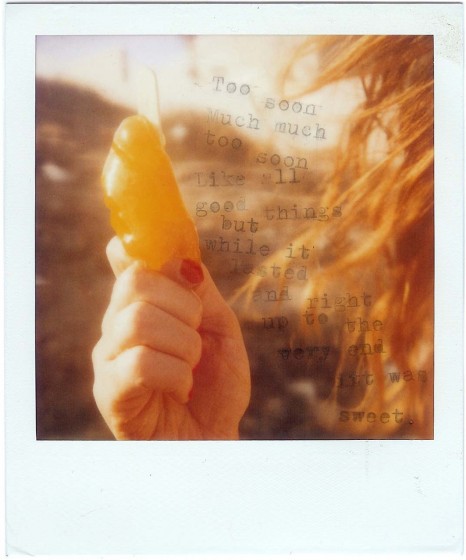 Too soon
Much much
too soon
Like all
good things
but
while it
lasted
and right
up to the
very end
it was
sweet.